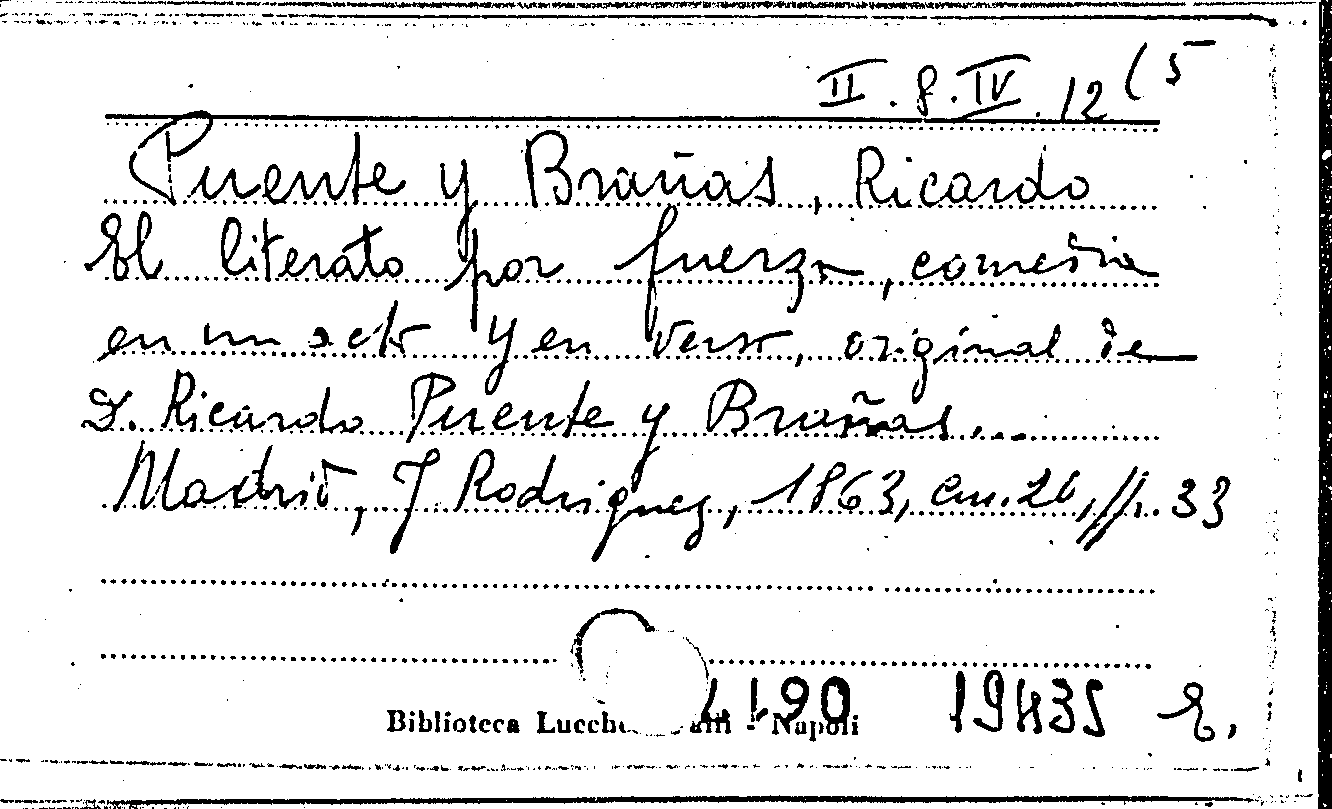 II.8.IV.12(5
Puente y Brañas, Ricardo
El literato por fuerza, comedia
en un acto y en verso, original de
D. Ricardo Puente y Brañas...
Madrid, J Rodriguez, 1863, cm. 20, pp. 33
Biblioteca - Napoli